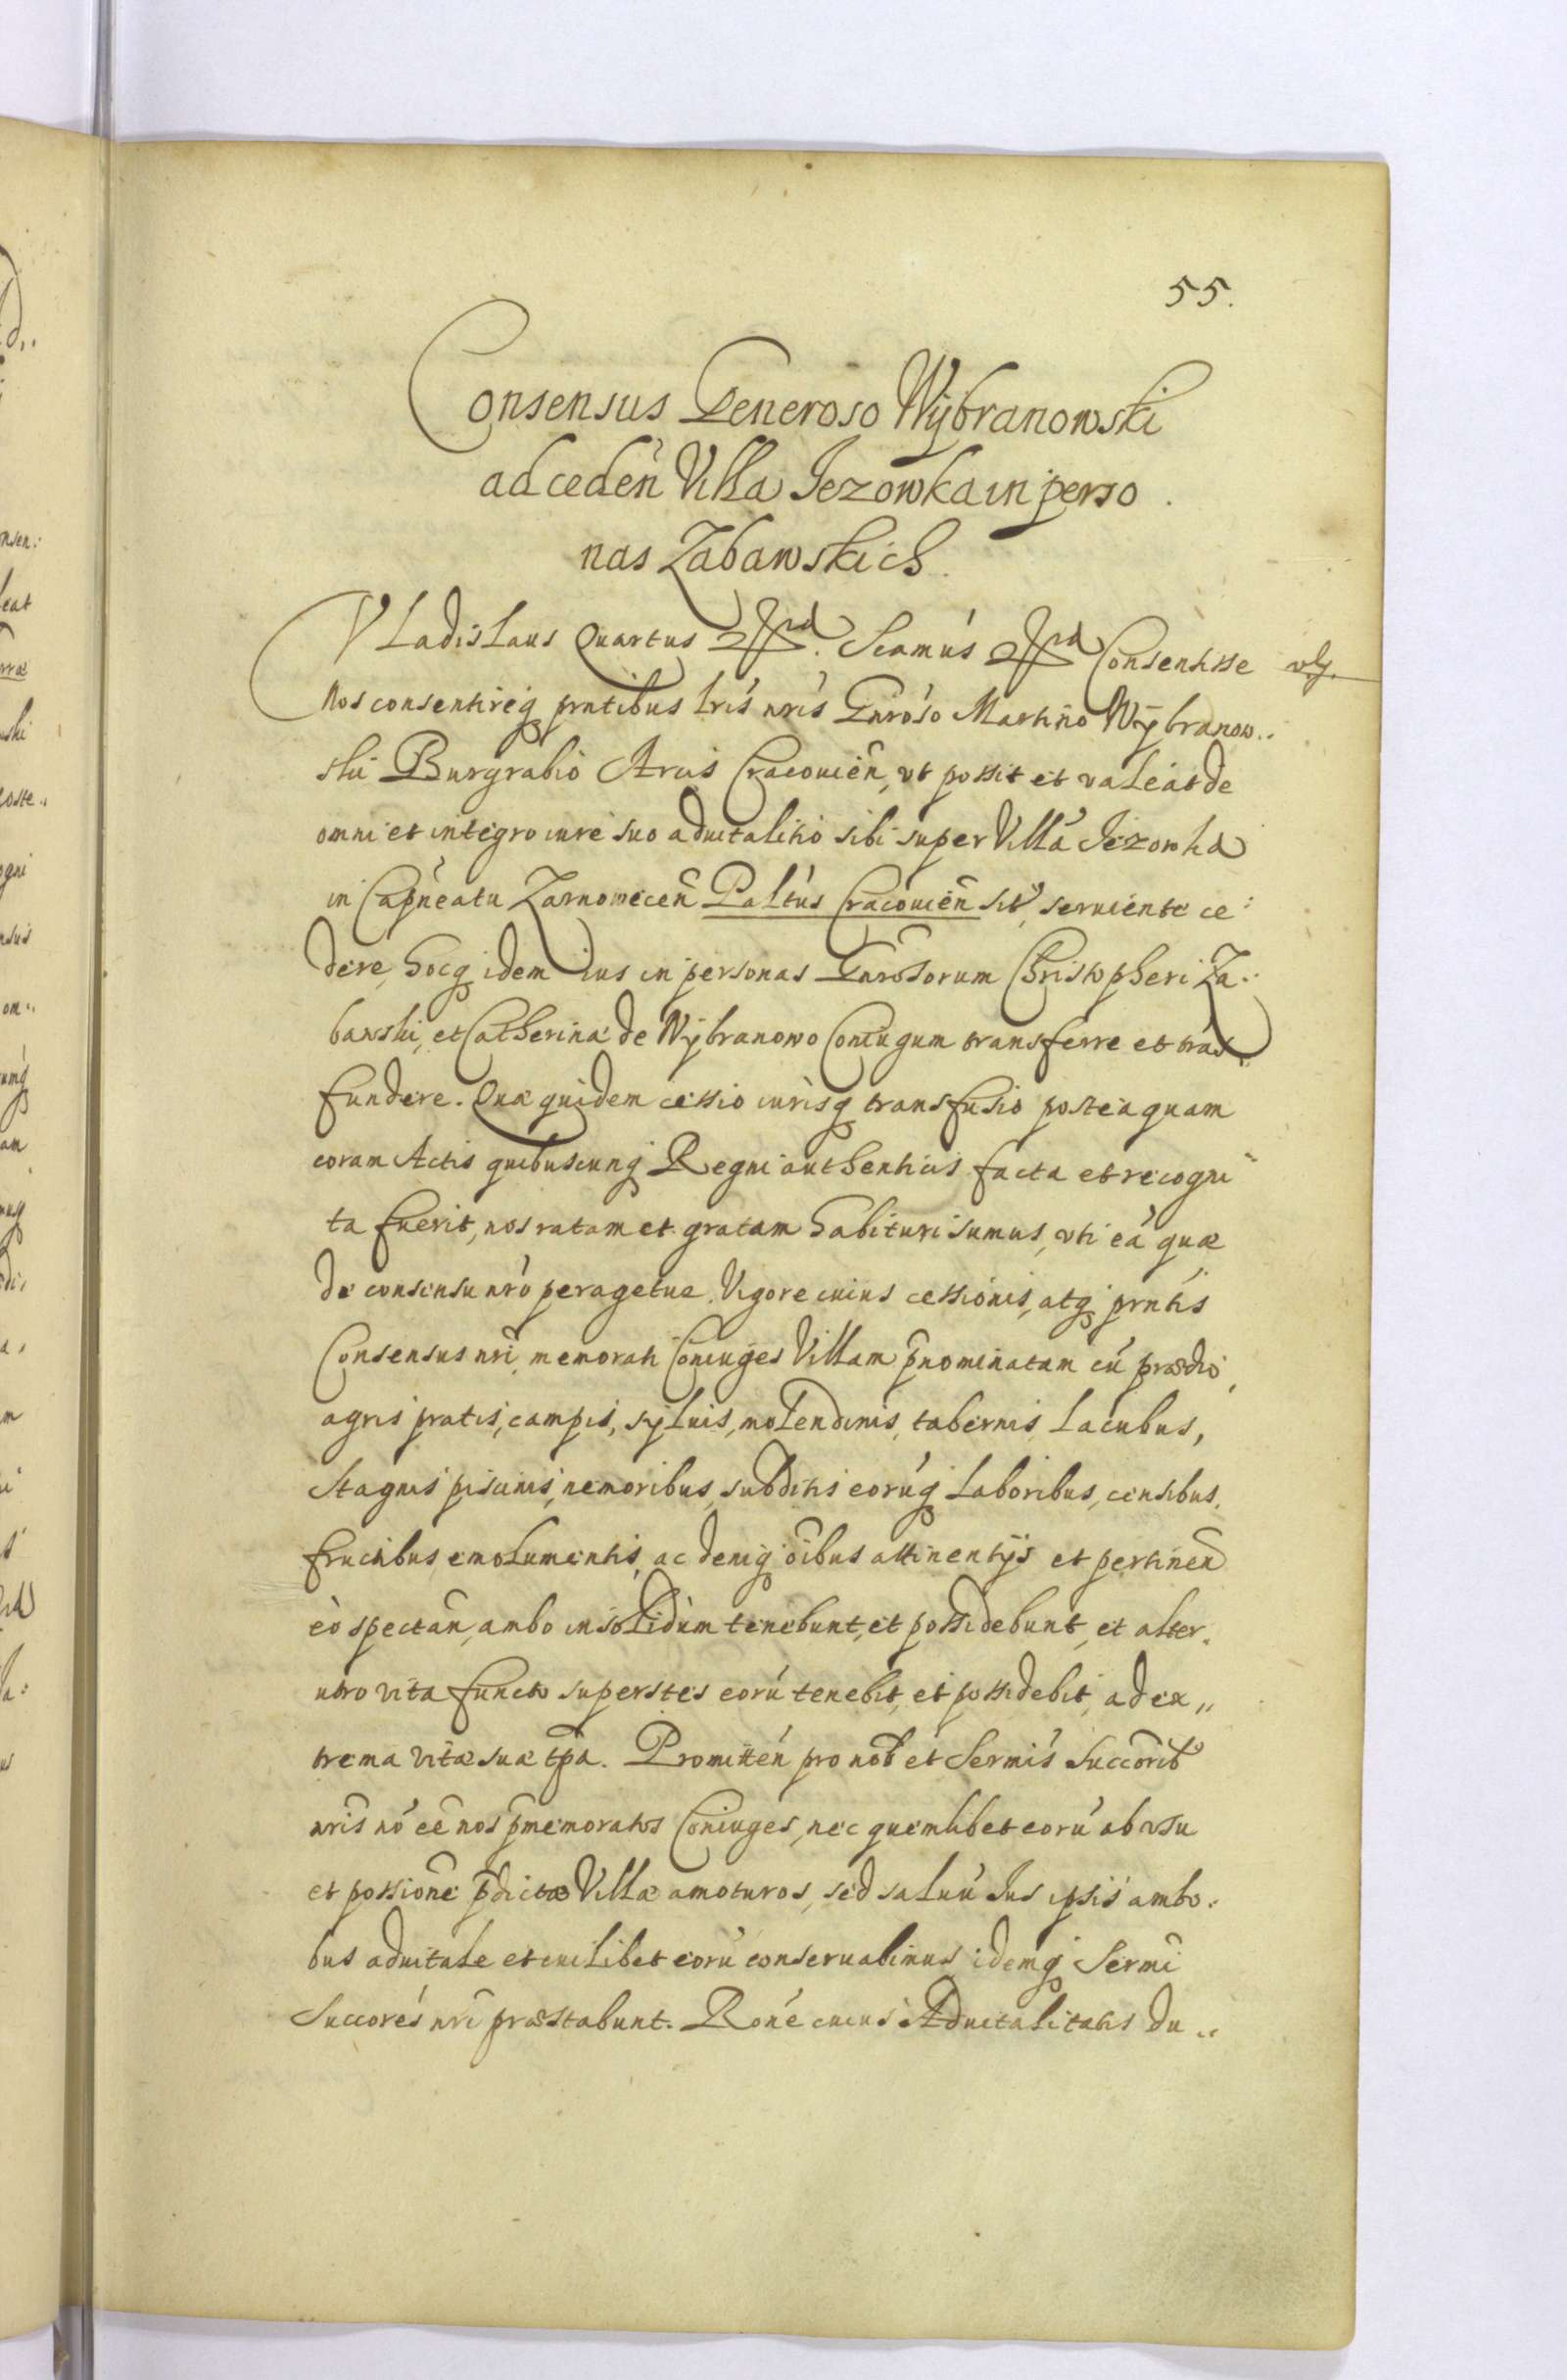 55.
Consensus Generoso Wÿbranowski
ad ceden̄ Villa Jezowka in perso
nas Zabawskich.
Vladislaus Quartus Sca&#x301;mus Consentisse
Nos consentireq pntibus lris nris Gnroso Martino Wÿbranow..
ski Burgrabio Arcis Cracouien̄, vt possit et valeat de
omni et integro iure suo aduitalitio sibi super Villá Jezowka
in Capneatu Zarnowecen̄ Paltus Cracouien̄ sit, seruiente ce:
dere, hocq idem ius in personas Gnrosorum Christopheri Za..
bawski, et Catherinæ de Wÿbranowo Coniugum transferre et trás
fundere. Quæ quidem cessio iurisq transfusio posteaquam
coram Actis quibuscunq Regni authenticis facta et recogni
ta fuerit, nos ratam et gratam habituri sumus, vti eá quæ
de consensu nro peragetur. Vigore cuius cessionis, atq prntis
Consensus nri, memorati Coniuges Villam p̄nominatam cú prædio,
agris pratis, campis, syluis, molendinis, tabernis, lacubus,
stagnis piscinis, nemoribus, subditis eorúq laboribus, censibus,
fructibus emolumentis, ac deniq oībus attinentijs et pertinen̄
eò spectan̄, ambo in solidùm tenebunt, et possidebunt, et alter.
utro vita functo superstes eorú tenebit, et possidebit, ad ex,,
trema vitæ suæ tp̄a. Promitten̄ pro nob et Sermis Succorib
nris nó eē nos p̄memoratos Coniuges, nec quemlibet eorú ab vsu
et possione p̄dictæ Villæ amoturos, sed saluú Jus ipsis ambo:
bus aduitale et cuilibet eorú conseruabimus, idemq Sermi
Succores nri præstabunt. Rone cuius Aduitalitatis du..